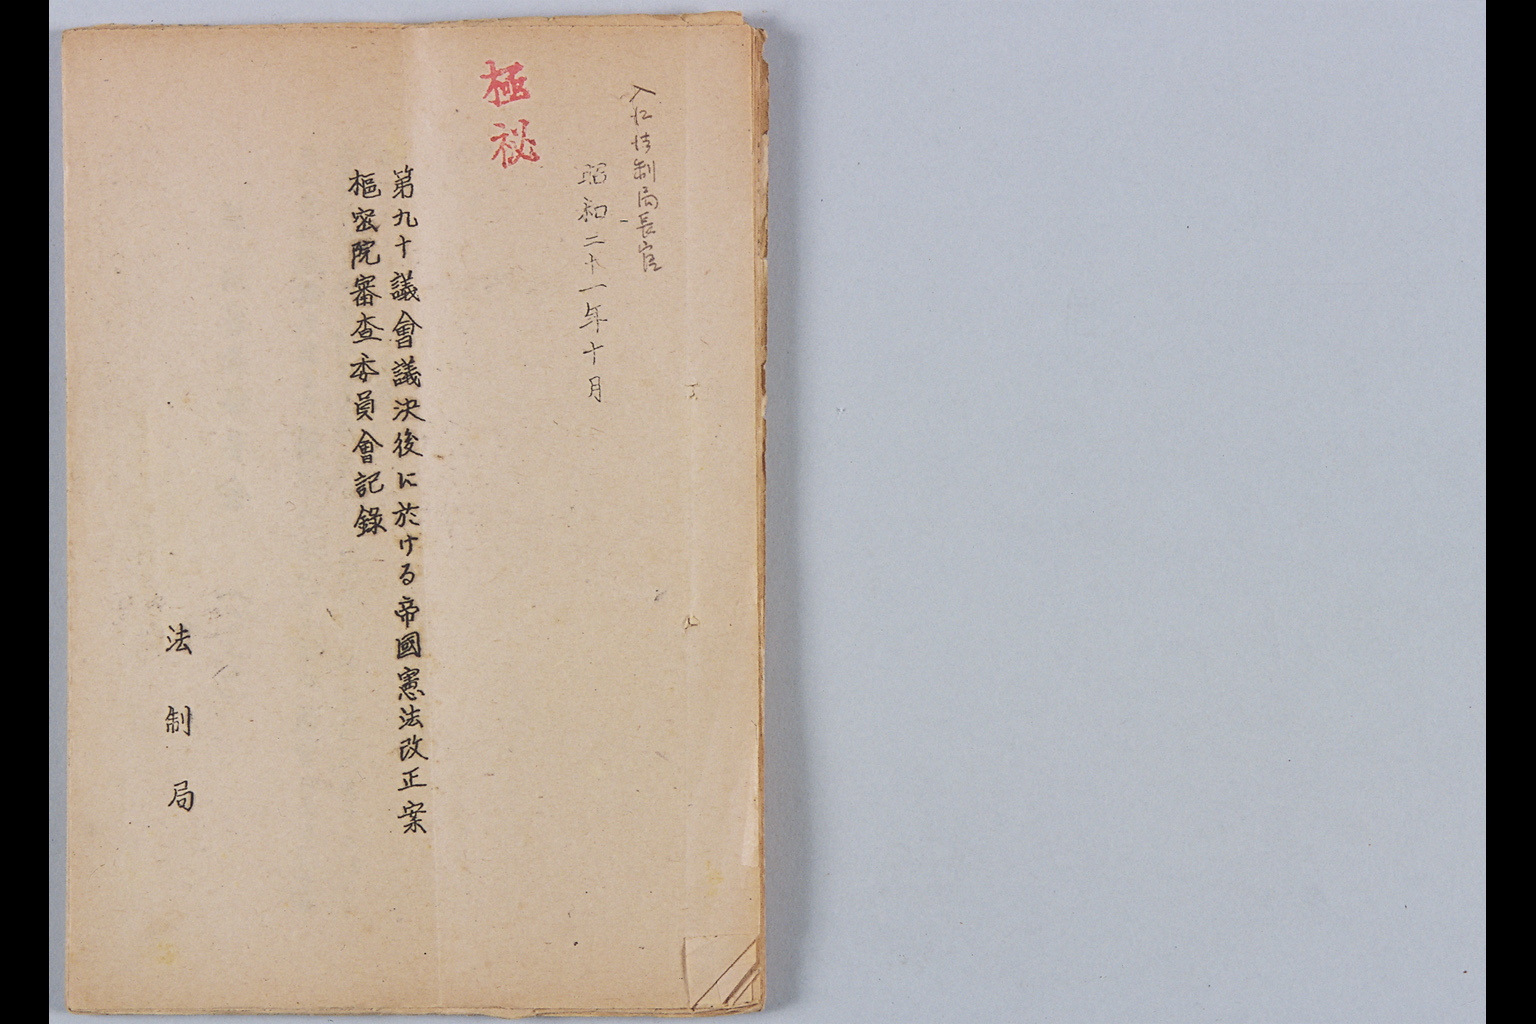 入江法制局長官
昭和二十一年十月
極秘
第九十議會議決後に於ける帝國憲法改正案
樞密院審査委員會記錄
法制局